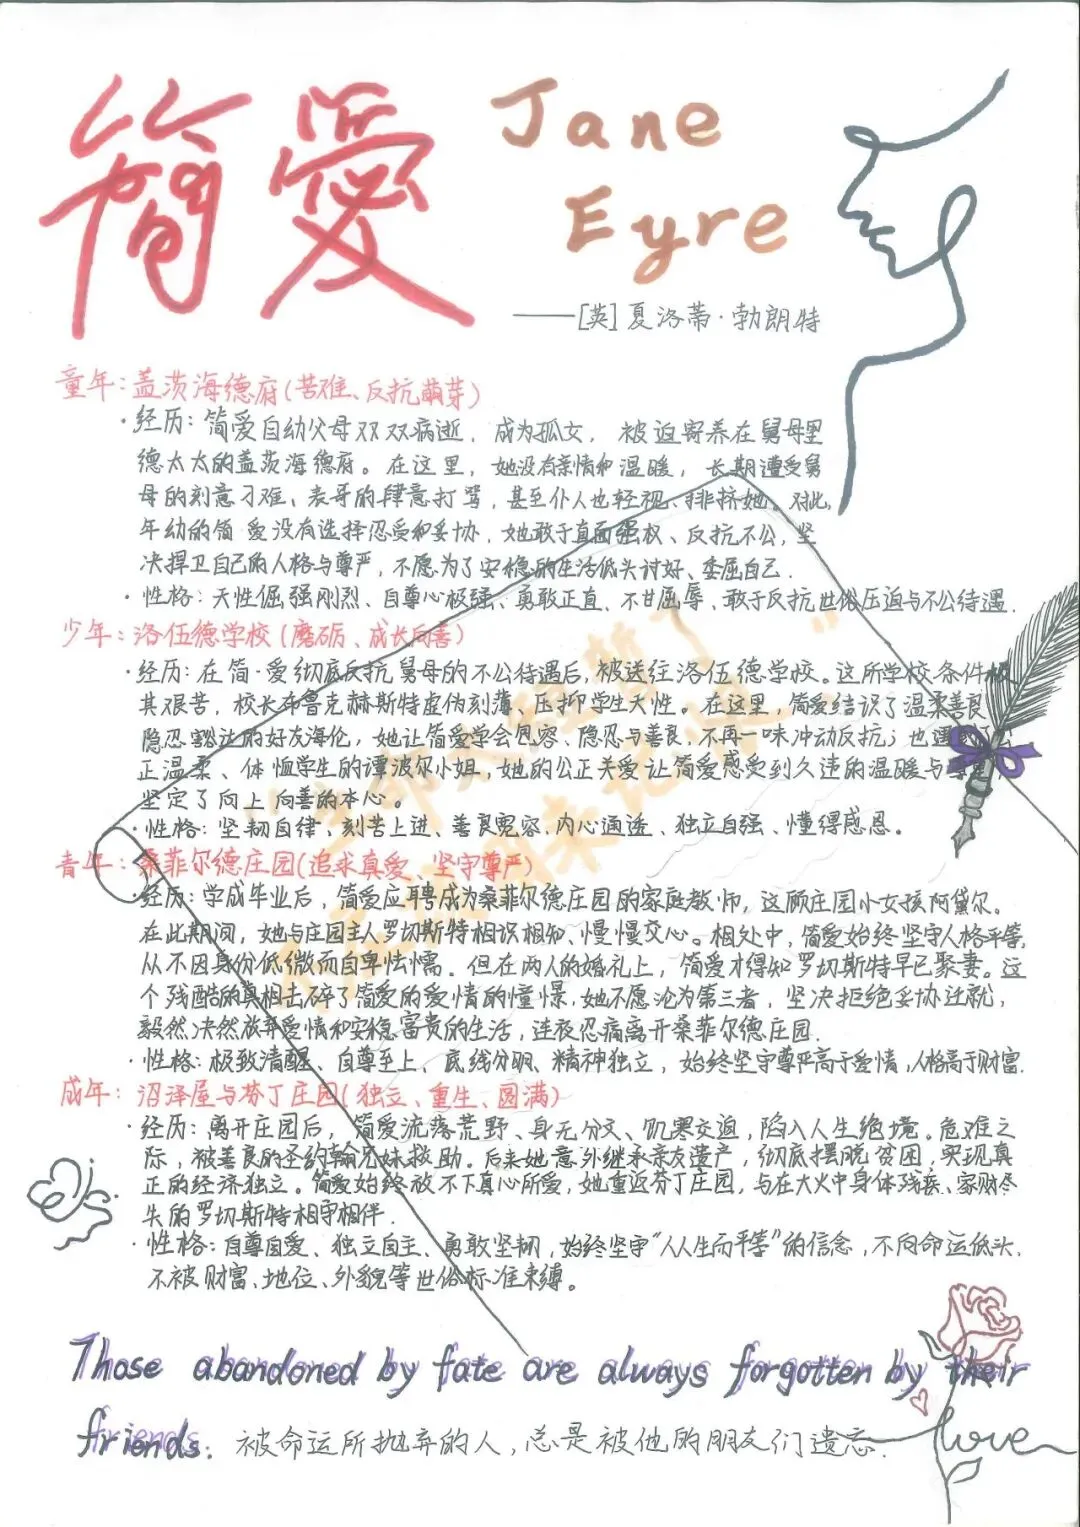 简爱
Jane
Eyre
——[英]夏洛蒂·勃朗特
童年：盖茨海德府(苦难、反抗萌芽)
·经历：简爱自幼父母双双病逝，成为孤女，被迫寄养在舅母里
德太太的盖茨海德府。在这里，她没有亲情和温暖，长期遭受舅
母的刻意刁难、表哥的肆意打骂，甚至仆人也轻视、排挤她。对此，
年幼的简爱没有选择忍受和妥协，她敢于直面强权、反抗不公，坚
决捍卫自己的人格与尊严，不愿为了安稳的生活低头讨好、委屈自己.
·性格：天性倔强刚烈、自尊心极强、勇敢正直、不甘屈辱、敢于反抗世俗压迫与不公待遇.
少年：洛伍德学校(磨砺、成长向善)
·经历：在简·爱彻底反抗舅母的不公待遇后，被送往洛伍德学校。这所学校条件极
其艰苦，校长布鲁克赫斯特虚伪刻薄、压抑学生天性。在这里，简爱结识了温柔善良、
隐忍豁达的好友海伦，她让简爱学会包容、隐忍与善良，不再一味冲动反抗；也遇
正温柔、体恤学生的谭波尔小姐，她的公正关爱让简爱感受到久违的温暖与
坚定了向上向善的本心。
·性格：坚韧自律、刻苦上进、善良宽容、内心通透、独立自强、懂得感恩。
青年：桑菲尔德庄园(追求真爱、坚守尊严)
·经历：学成毕业后，简爱应聘成为桑菲尔德庄园的家庭教师，这顾庄园小女孩阿黛尔。
在此期间，她与庄园主人罗切斯特相识相知、慢慢交心。相处中，简爱始终坚守人格平等，
从不因身份低微而自卑怯懦。但在两人的婚礼上，简爱才得知罗切斯特早已娶妻。这
个残酷的真相击碎了简爱的爱情的憧憬，她不愿沦为第三者，坚决拒绝妥协迁就，
毅然决然放弃爱情和安稳富贵的生活，连夜忍痛离开桑菲尔德庄园.
·性格：极致清醒、自尊至上、底线分明、精神独立，始终坚守尊严高于爱情，人格高于财富.
成年：沼泽屋与芬丁庄园(独立、重生、圆满)
·经历：离开庄园后，简爱流落荒野、身无分文、饥寒交迫，陷入人生绝境。危难之
际，被善良的圣约翰兄妹救助。后来她意外继承亲友遗产，彻底摆脱贫困，实现真
正的经济独立。简爱始终放不下真心所爱，她重返芬丁庄园，与在大火中身体残疾、家财尽
失的罗切斯特相守相伴.
·性格：自尊自爱、独立自主、勇敢坚韧，始终坚守“人人生而平等”的信念，不向命运低头、
不被财富、地位、外貌等世俗标准束缚。
“生命太短暂了
不应该用来记恨”
Those abandoned by fate are always forgotten by their
friends. 被命运所抛弃的人，总是被他的朋友们遗忘.
love